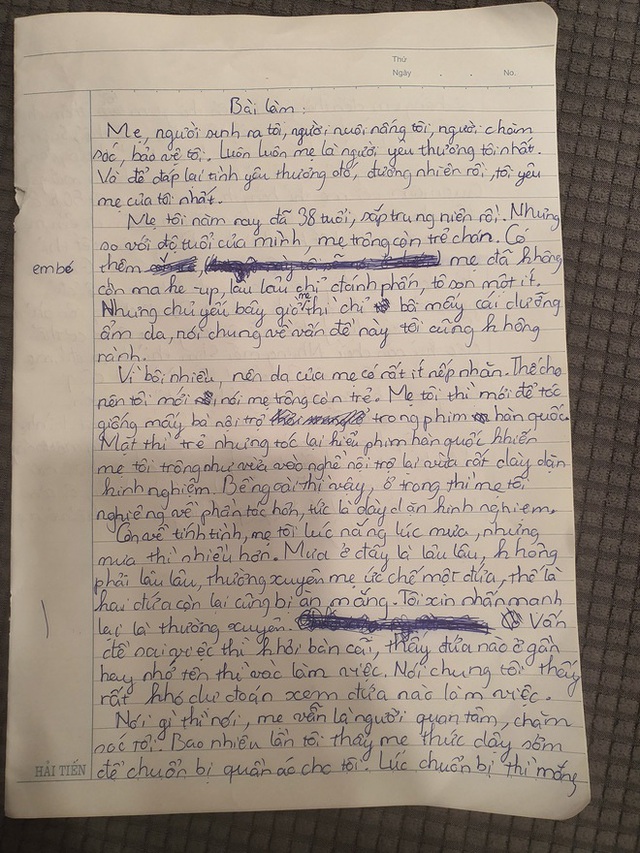 Thứ
Ngày . . No.
Bài làm:
Mẹ, người sinh ra tôi, người nuôi nấng tôi, người chăm
sóc, bảo vệ tôi. Luôn luôn mẹ là người yêu thương tôi nhất.
Và để đáp lại tình yêu thương đó, đương nhiên rồi, tôi yêu
mẹ của tôi nhất.
Mẹ tôi năm nay đã 38 tuổi, sắp trung niên rồi. Nhưng
so với độ tuổi của mình, mẹ trông còn trẻ chán. Có
thêm em bé mẹ đã không
còn make-up, lâu lâu chỉ đánh phấn, tô son một ít.
Nhưng chủ yếu bây giờ mẹ thì chỉ bôi mấy cái dưỡng
ẩm da, nói chung về vấn đề này tôi cũng không
rành.
Vì bôi nhiều, nên da của mẹ có rất ít nếp nhăn. Thế cho
nên tôi mới nói mẹ trông còn trẻ. Mẹ tôi thì mới để tóc
giống mấy bà nội trợ trong phim hàn quốc.
Mặt thì trẻ nhưng tóc lại kiểu phim hàn quốc khiến
mẹ tôi trông như vừa vào nghề nội trợ lại vừa rất dày dặn
kinh nghiệm. Bề ngoài thì vậy, ở trong thì mẹ tôi
nghiêng về phần tóc hơn, tức là dày dặn kinh nghiệm.
Còn về tính tình, mẹ tôi lúc nắng lúc mưa, nhưng
mưa thì nhiều hơn. Mưa ở đây là lâu lâu, không
phải lâu lâu, thường xuyên mẹ ức chế một đứa, thế là
hai đứa còn lại cũng bị ăn mắng. Tôi xin nhấn mạnh
lại là thường xuyên. Vấn
đề sai việc thì khỏi bàn cãi, thấy đứa nào ở gần
hay nhớ tên thì vác làm việc. Nói chung tôi thấy
rất khó dự đoán xem đứa nào làm việc.
Nói gì thì nói, mẹ vẫn là người quan tâm, chăm
sóc tôi. Bao nhiêu lần tôi thấy mẹ thức dậy sớm
để chuẩn bị quần áo cho tôi. Lúc chuẩn bị thì mắng
HẢI TIẾN